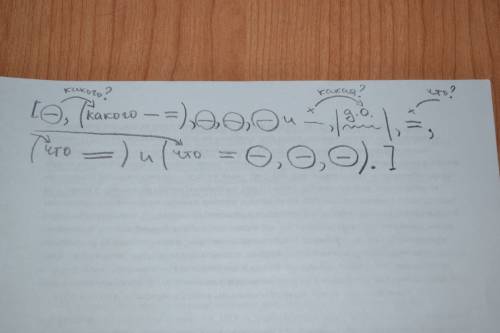 какого? какая? что?
[⊖, (какого — =), ⊖, ⊖, ⊖ и —, |д.о.|, =,
(что =) и (что = ⊖, ⊖, ⊖).]